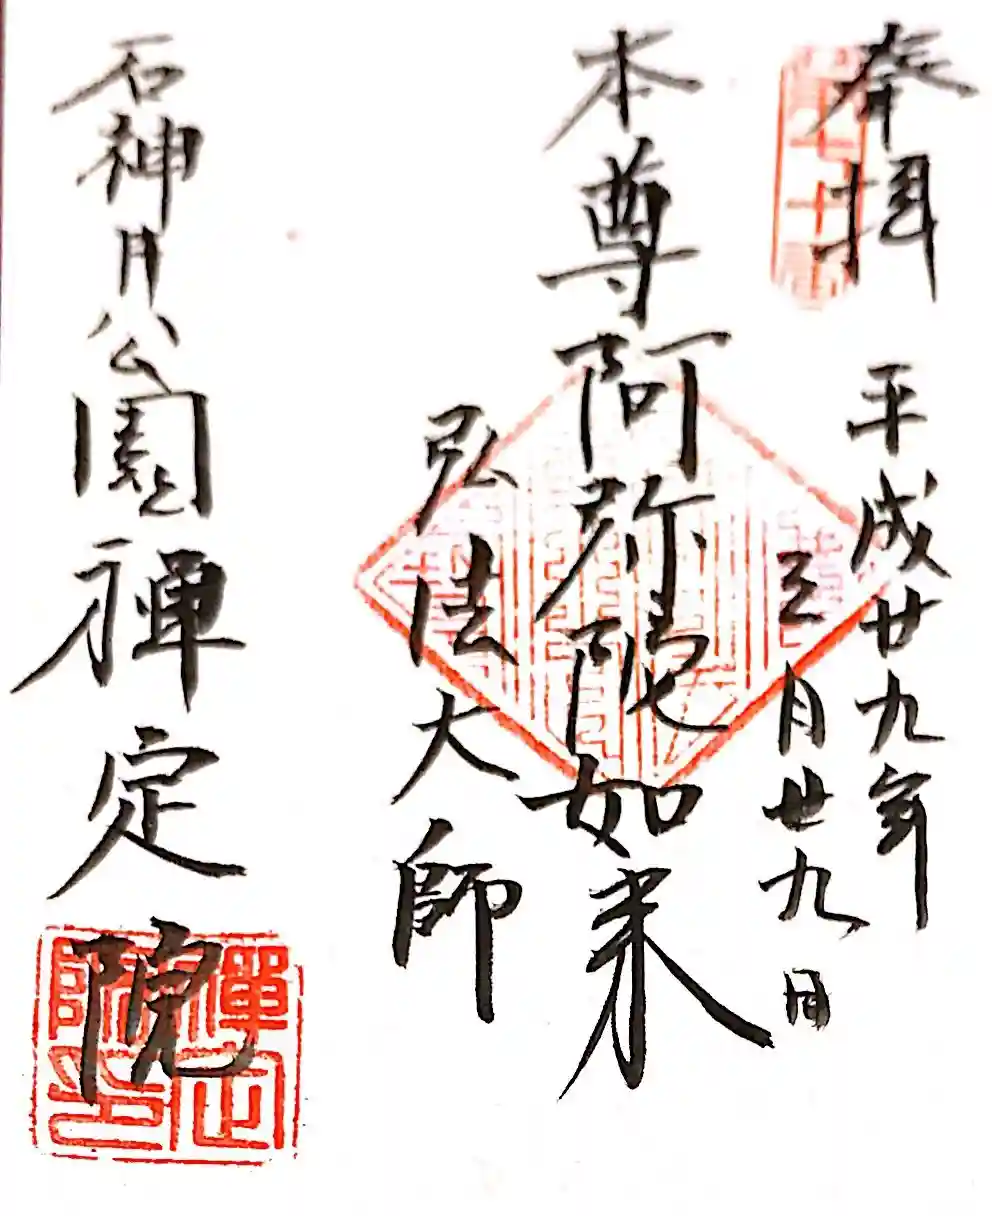 奉拝
平成廿九年
三月廿九日
本尊阿弥陀如来
弘法大師
石神井公園禅定院